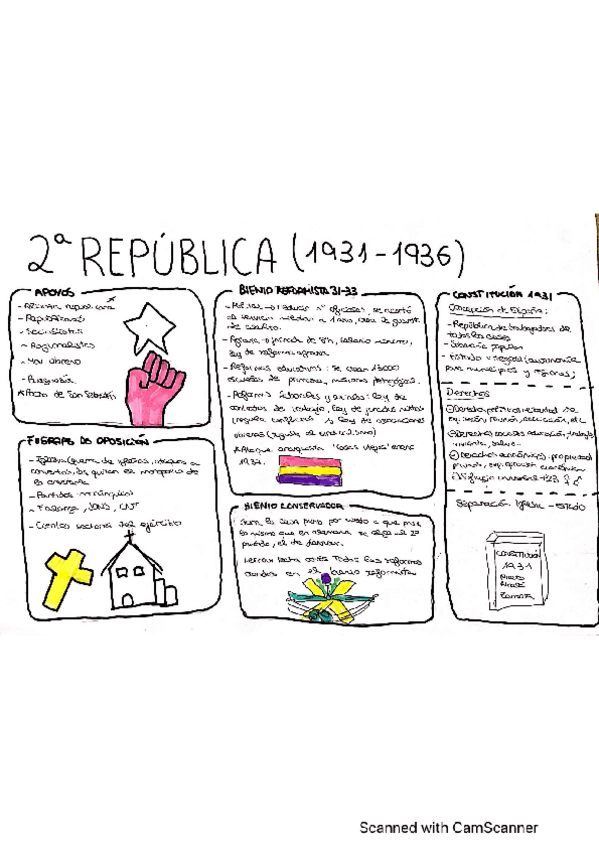 2ª REPÚBLICA (1931-1936)
APOYOS
- Republicanos
- Socialistas
- Regionalistas
- Mov. obrero
- Burguesía
* Pacto de San Sebastián
FUERZAS DE OPOSICIÓN
- Iglesia (quema de iglesias, ataques a
conventos, les quitan el monopolio de
la enseñanza
- Partidos monárquicos
- Falange, JONS, CNT
- Ciertos sectores del ejército
BIENIO REFORMISTA 31-33
- Militar → reducir nº oficiales, se recortó
el servicio militar a 1 año,
de asalto.
- Agraria → jornada de 8h, salario mínimo,
ley de reforma agraria
- Reformas educativas: se crean 13000
escuelas de primaria, misiones pedagógicas.
- Reformas laborales y sociales: ley de
contratos de trabajo, ley de jurados mixtos
(regula conflictos) y ley de asociaciones
obreras (regula el sindicalismo)
* Ataque anarquista "Casas Viejas" enero
1933.
BIENIO CONSERVADOR
lo mismo que en Alemania se alega el 2º
partido, el de Lerroux.
Lerroux echa atrás todas las reformas
dadas en el bienio reformista
CONSTITUCIÓN 1931
Concepción de España:
- República de trabajadores de
todas las clases
- Soberanía popular
- Estado integral (autonomía
para municipios y regiones)
Derechos
expresión, reunión, asociación, etc
② Derechos sociales educación, trabajo,
vivienda, salud..
③ Derechos económicos: propiedad
privada, expropiación económica
④ Sufragio universal +23 ♀ ♂
Separación Iglesia - estado
CONSTITUCIÓN
1931
Niceto
Alcalá
Zamora
Scanned with CamScanner